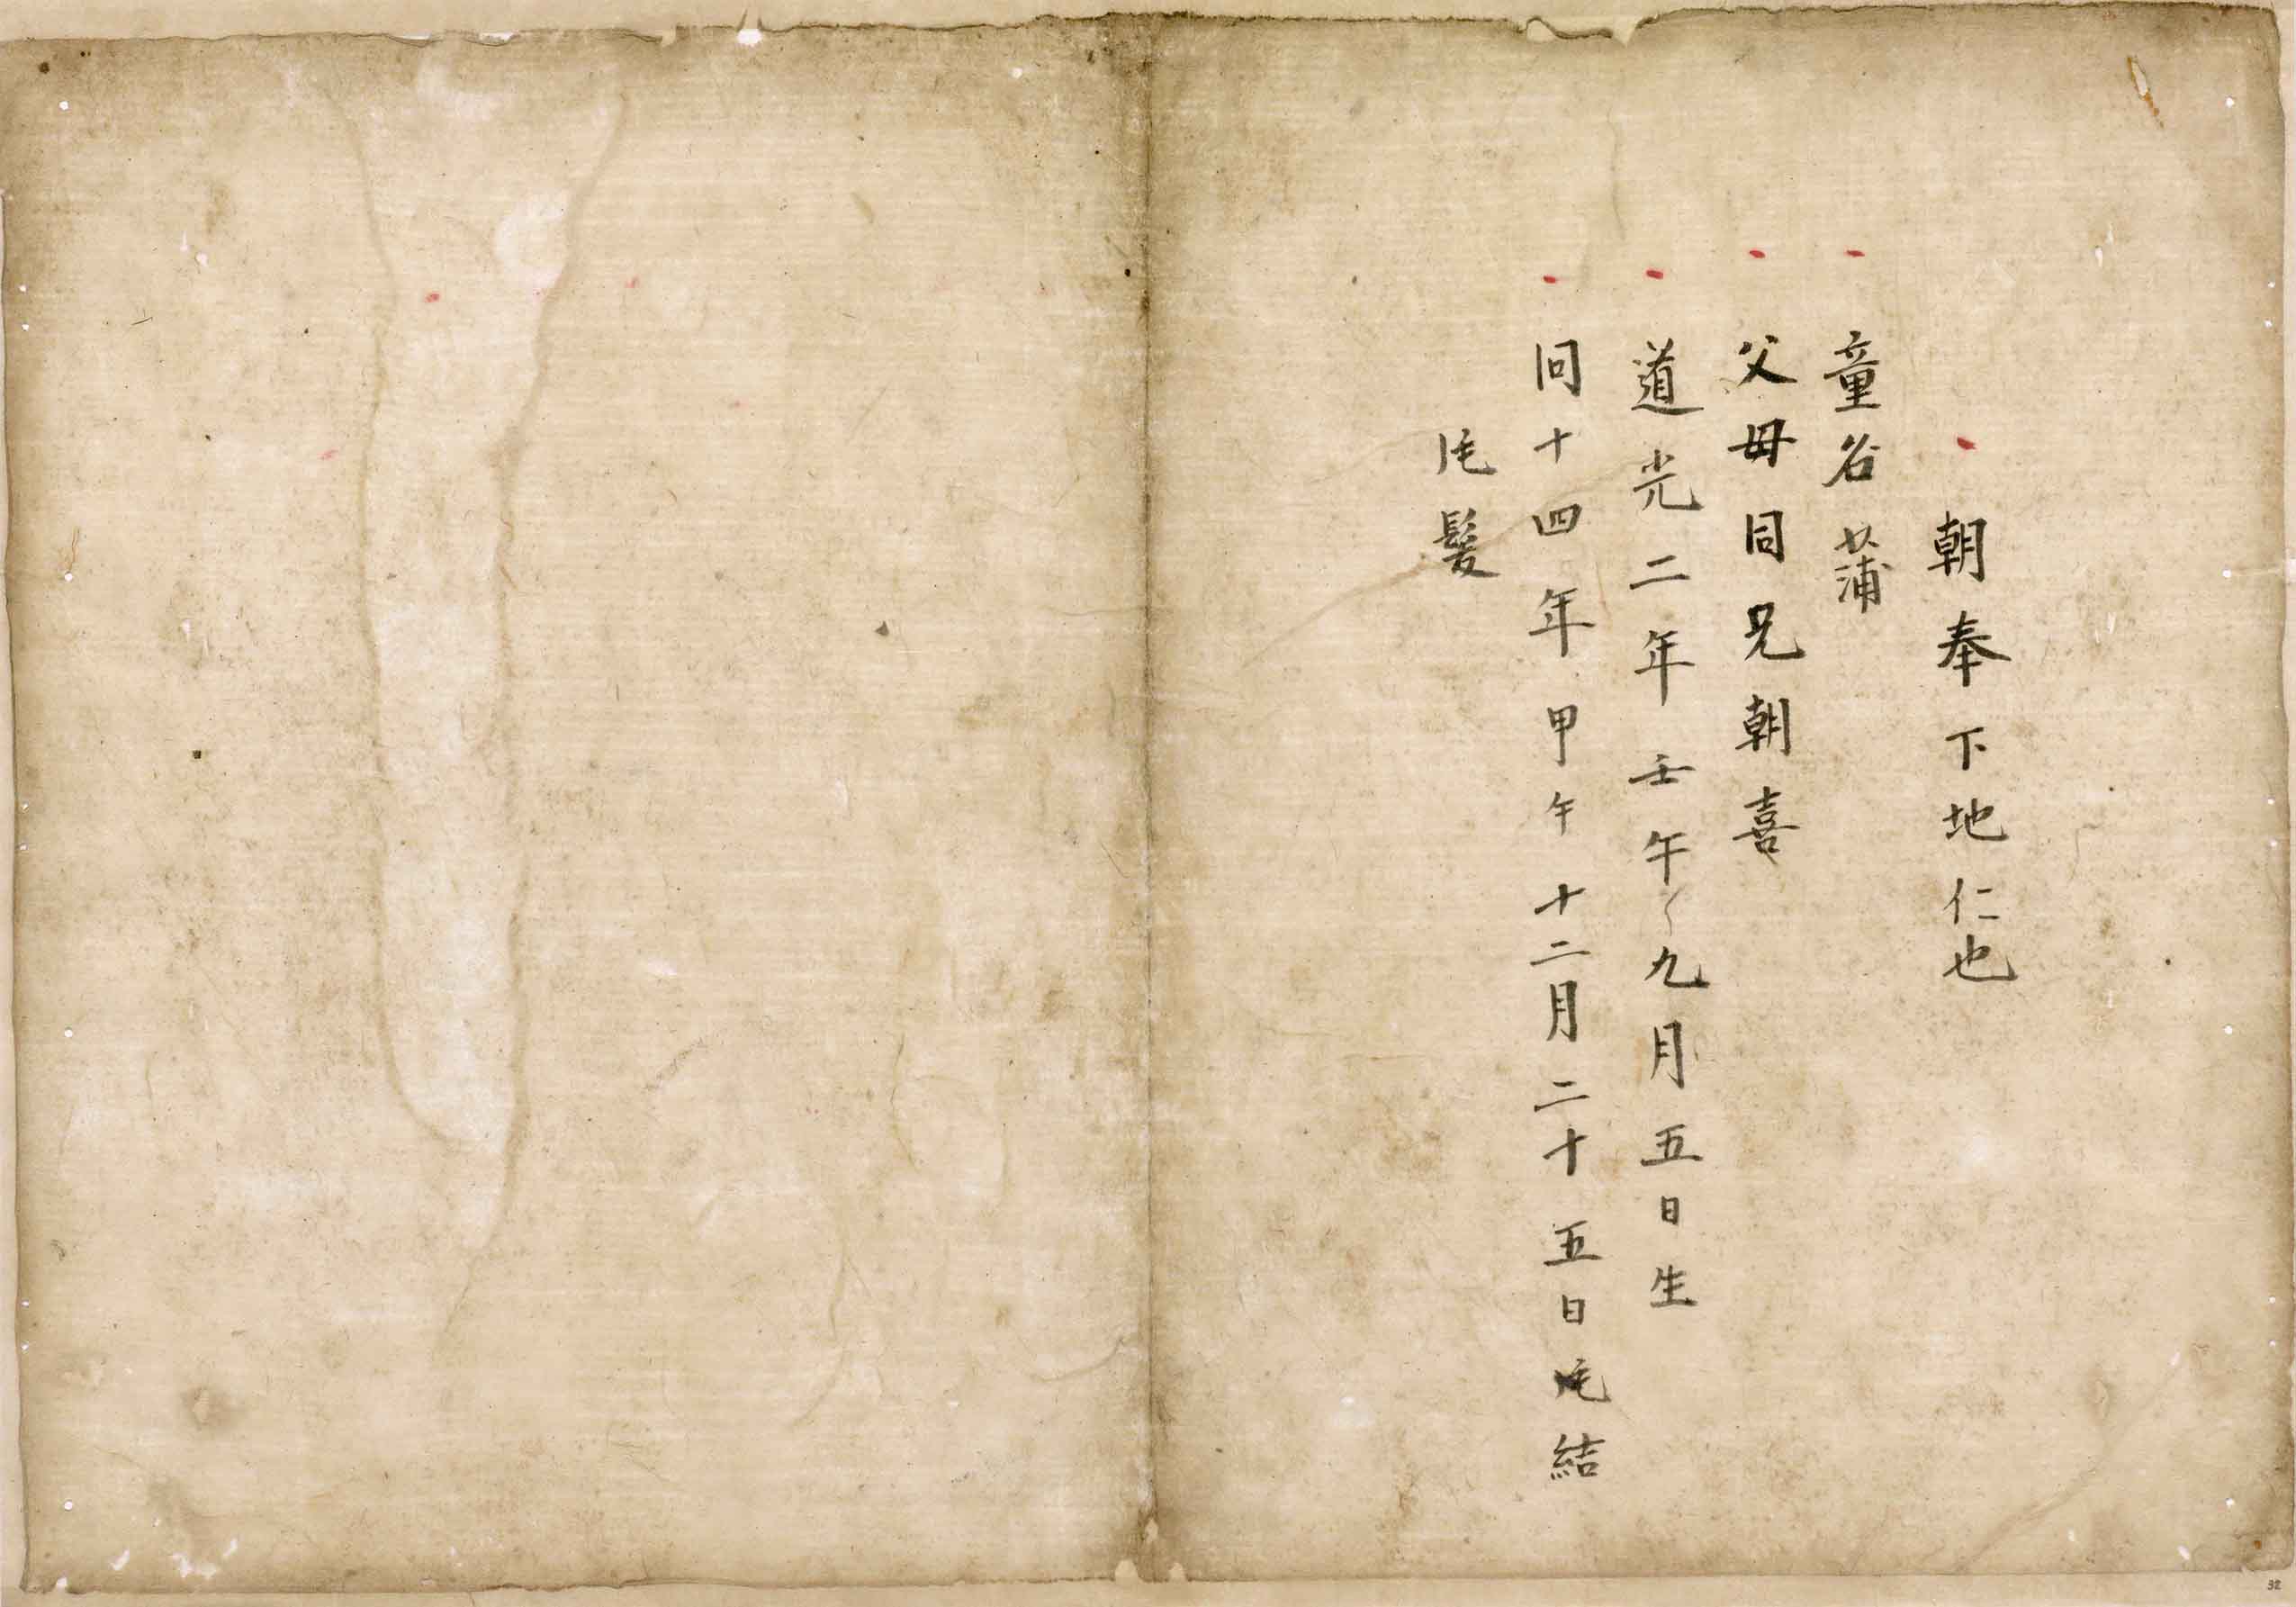 朝奉下地仁也
童名蒲
父母同兄朝喜
道光二年壬午九月五日生
同十四年甲午十二月二十五日結
髪
32